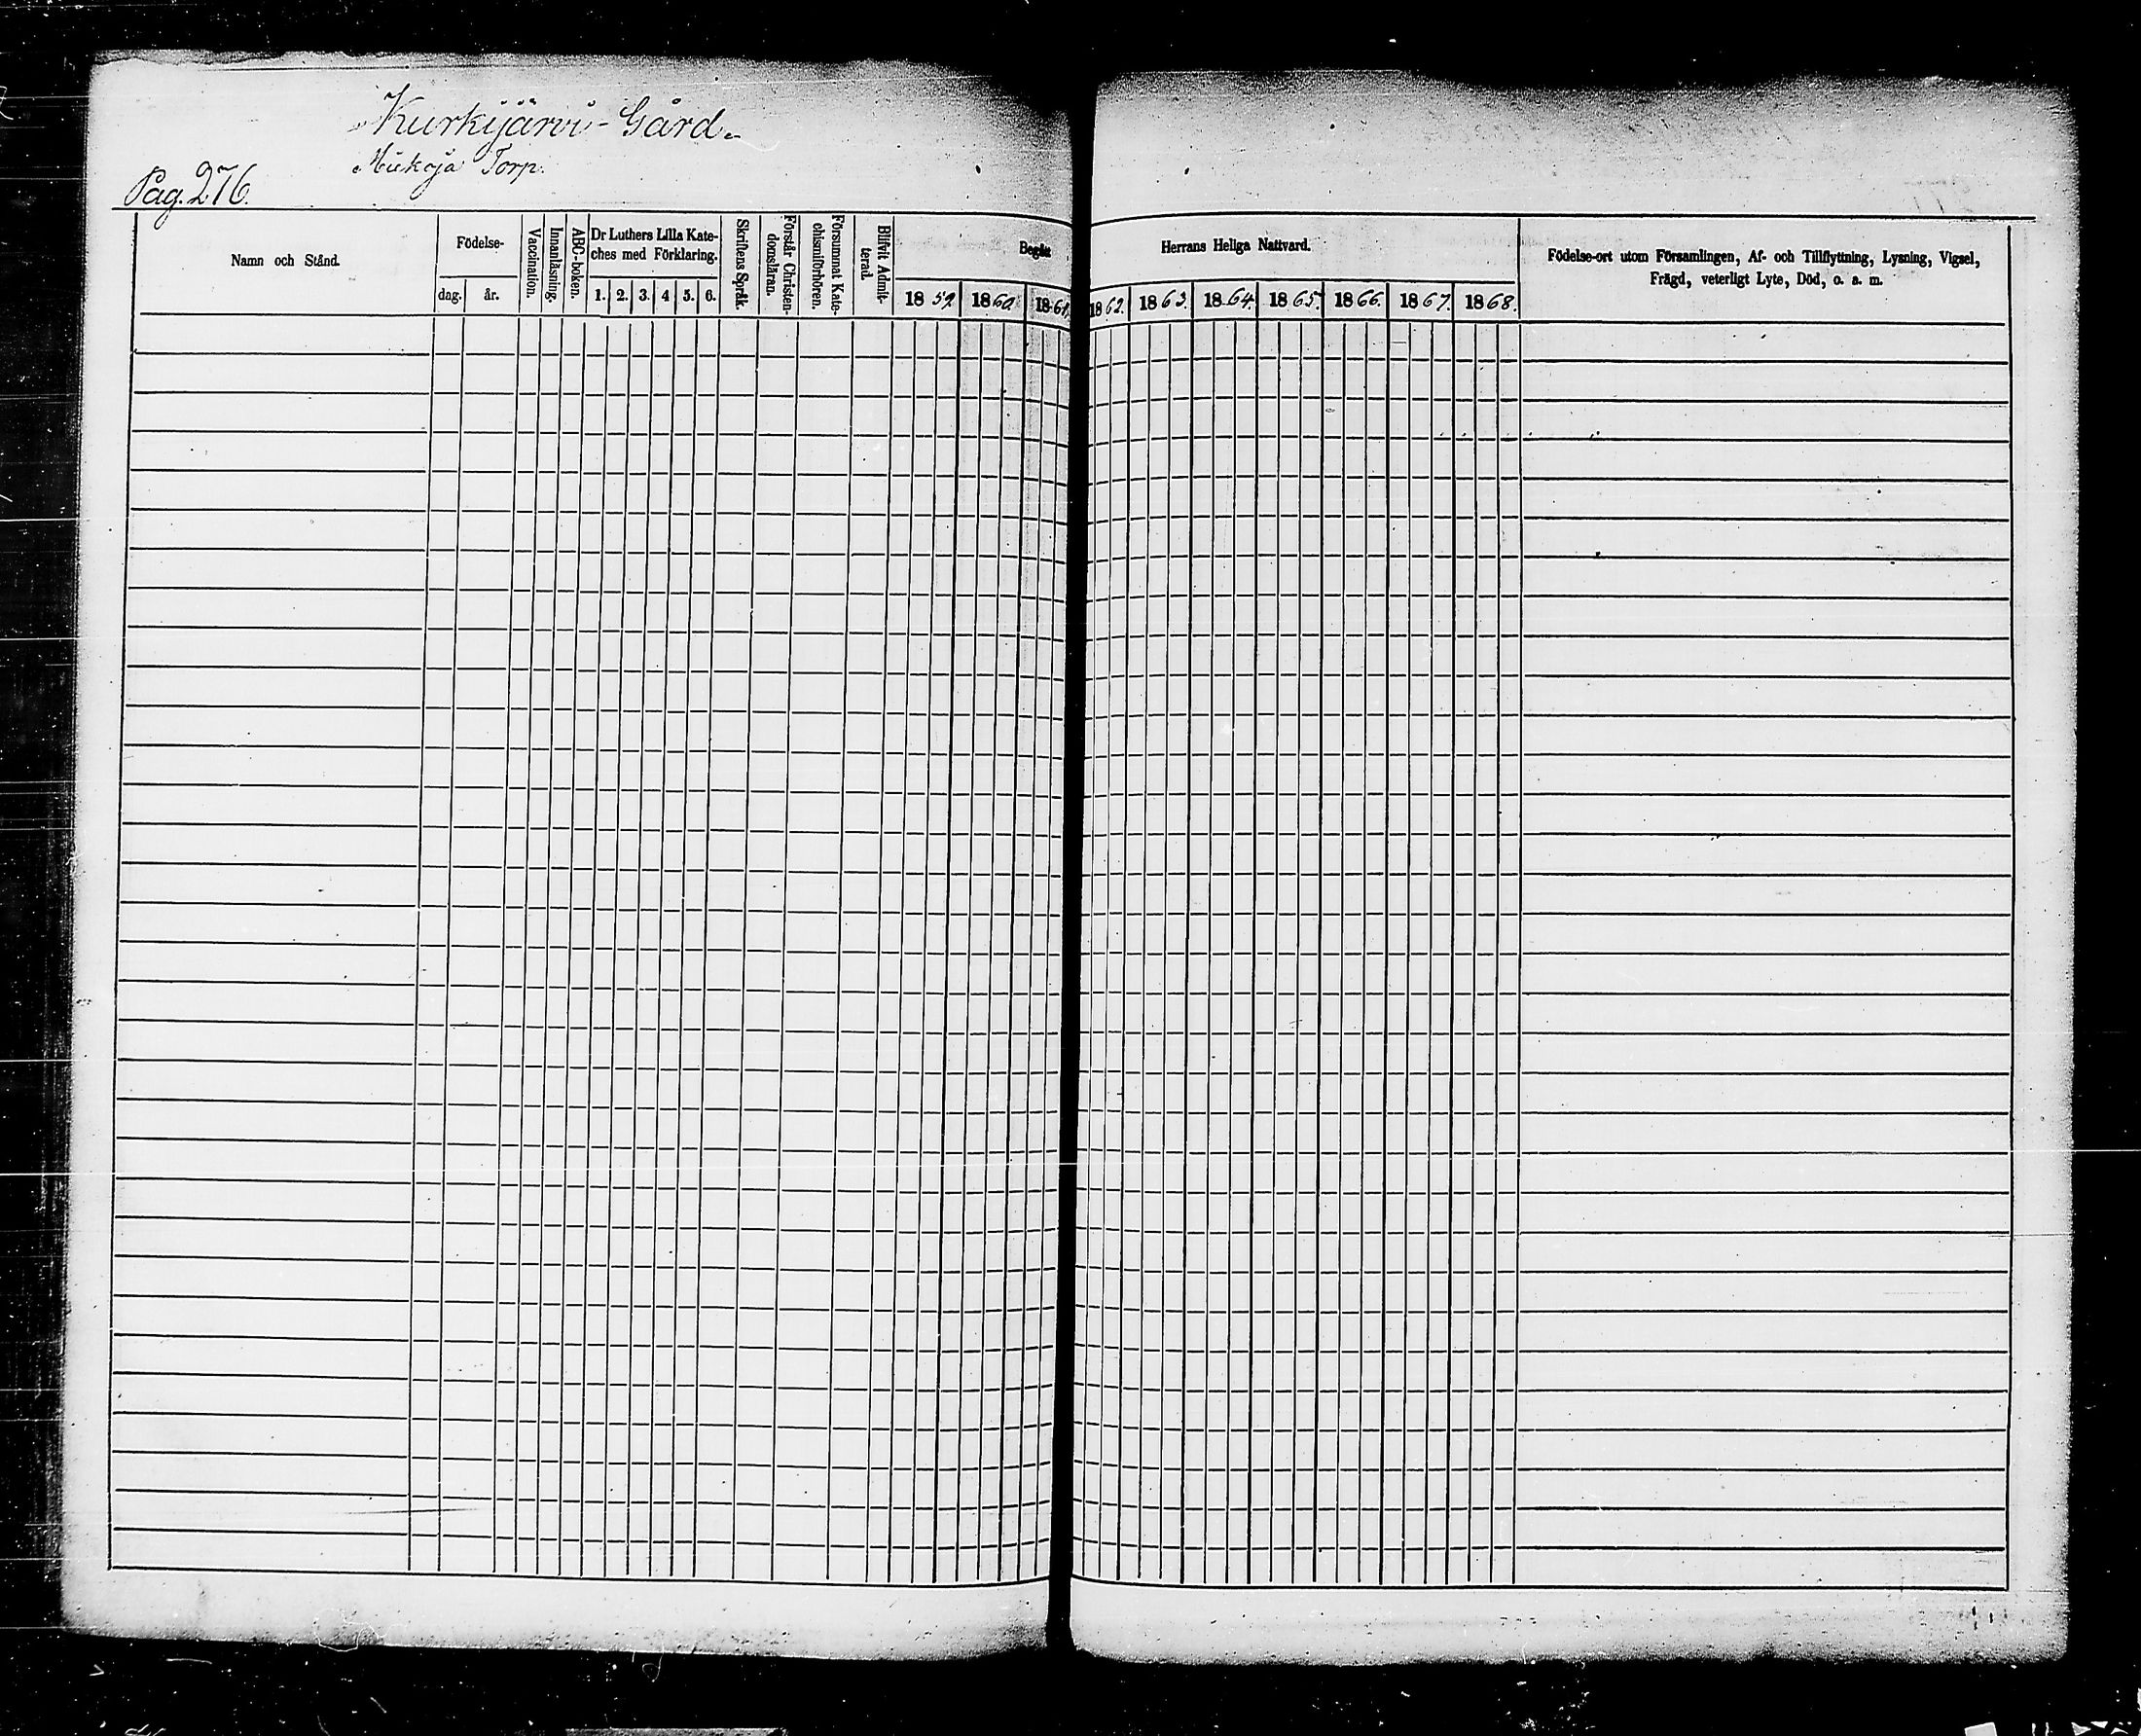 Kurkijärvi-Gård.
Torp.
Pag. 276.
Namn och Stånd.
Födelse-
dag. år.
Vaccination.
Innanläsning.
ABC-boken.
Dr Luthers Lilla Kate-
ches med Förklaring.
1. 2. 3. 4 5. 6.
Skriftens Språk.
Förstår Christen-
domsläran.
Försummat Kate-
chismiförhören.
Blifvit Admit-
terad.
Begått Herrans Heliga Nattvard.
1859. 1860. 1861. 1862. 1863. 1864. 1865. 1866. 1867. 1868.
Födelse-ort utom Församlingen, Af- och Tillflyttning, Lysning, Vigsel,
Frägd, veterligt Lyte, Död, o. a. m.